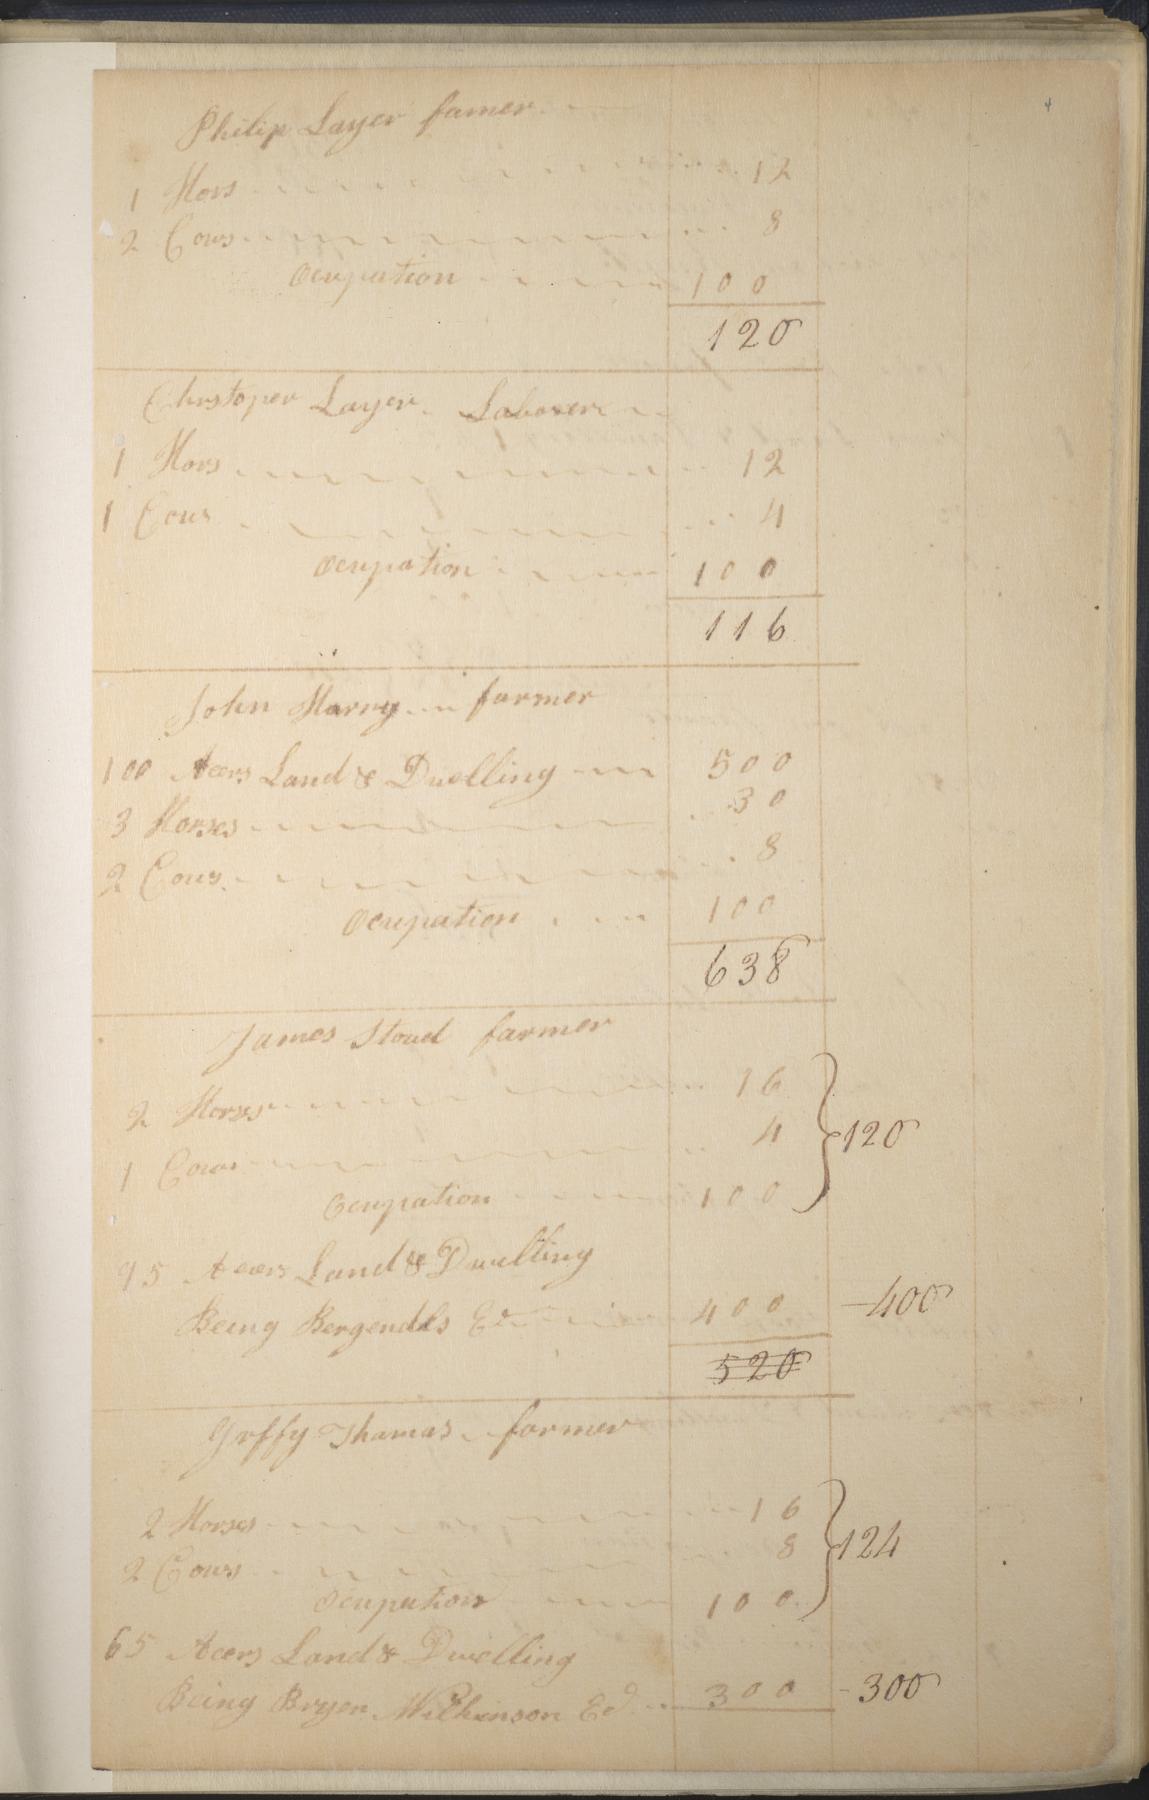 4
Philip Layer famer
1 Hors 12
2 Cows 8
Ocupation 100
120
Chrstoper Layer Laborer
1 Hors 12
1 Cow 4
Ocupation 100
116
John Harry farmer
100 Acers Land & Dwelling 500
3 Horses 30
2 Cows 8
Ocupation 100
638
James Stoud farmer
2 Horses 16
1 Cow 4 120
Ocupation 100
95 Acers Land & Dwelling
Being Bergendls Ed 400 400
520
Grffy Thamas farmer
2 Horses 16
2 Cows 8 124
Ocupation 100
65 Acers Land & Dwelling
Being Bryen Wilkinson Ed 300 300